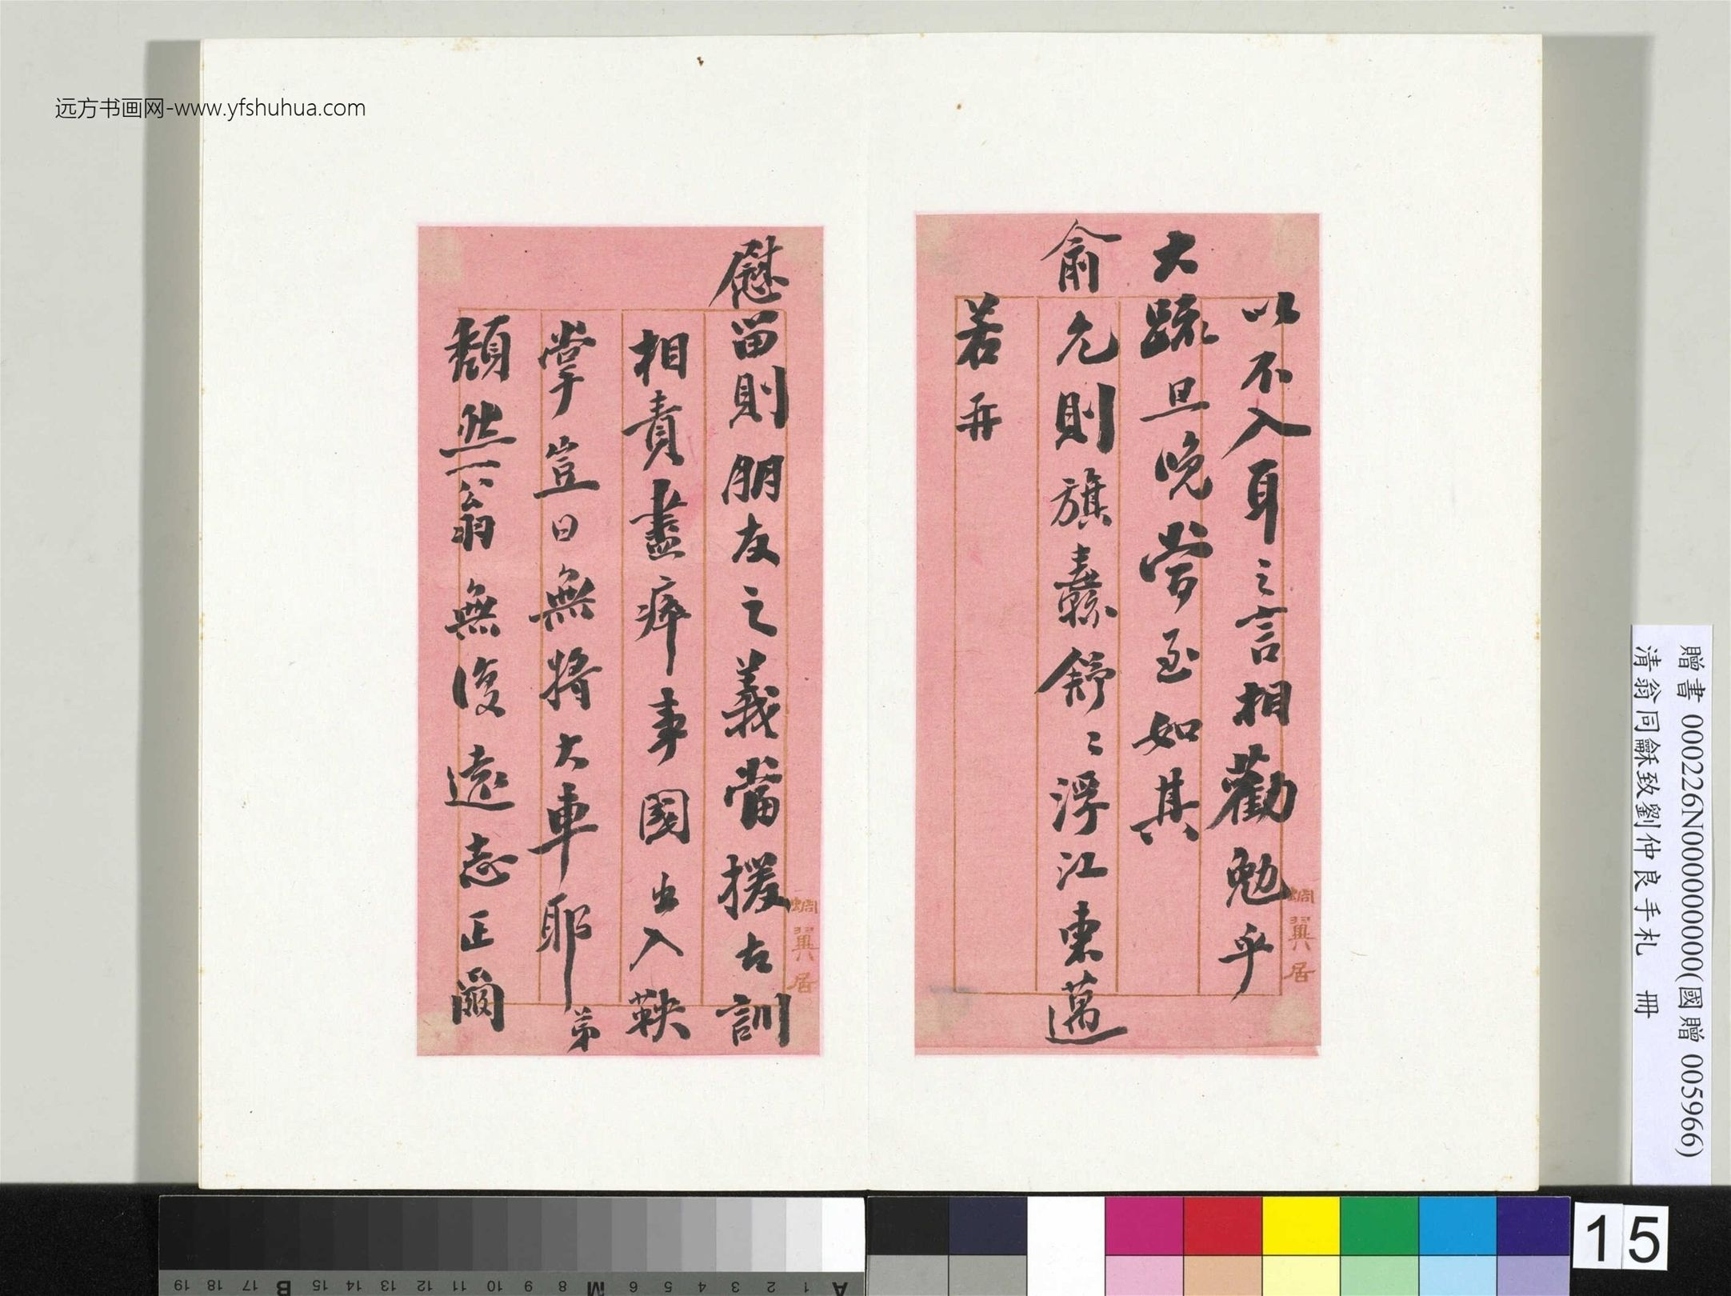 远方书画网-www.yfshuhua.com
以不入耳之言相勸勉乎
大疏旦晚當至如其
俞允則旗纛舒舒浮江東邁
若再
蜩翼居
慰留則朋友之義當援古訓
相責盡瘁事國出入鞅
掌豈曰無將大車耶弟
頹然一翁無復遠志正爾
蜩翼居
贈書 000226N000000000(國贈 005966)
清翁同龢致劉仲良手札 冊
15
A 1 2 3 4 5 6 M 8 9 10 11 12 13 14 15 B 17 18 19